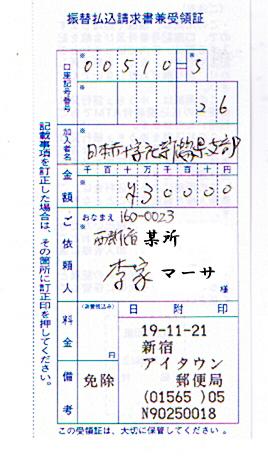 振替払込請求書兼受領証
口座記号番号
00510=5
26
加入者名
日本赤十字社新潟県支部
金額
千百十万千百十円
¥30000
ご依頼人
おなまえ 160-0023
西新宿 某所
李家 マーサ
様
料金
(消費税込み)
円
備考
免除
日附印
19-11-21
新宿
アイタウン
郵便局
(01565 )05
N90250018
記載事項を訂正した場合は、その箇所に訂正印を押してください。
この受領証は、大切に保管してください。